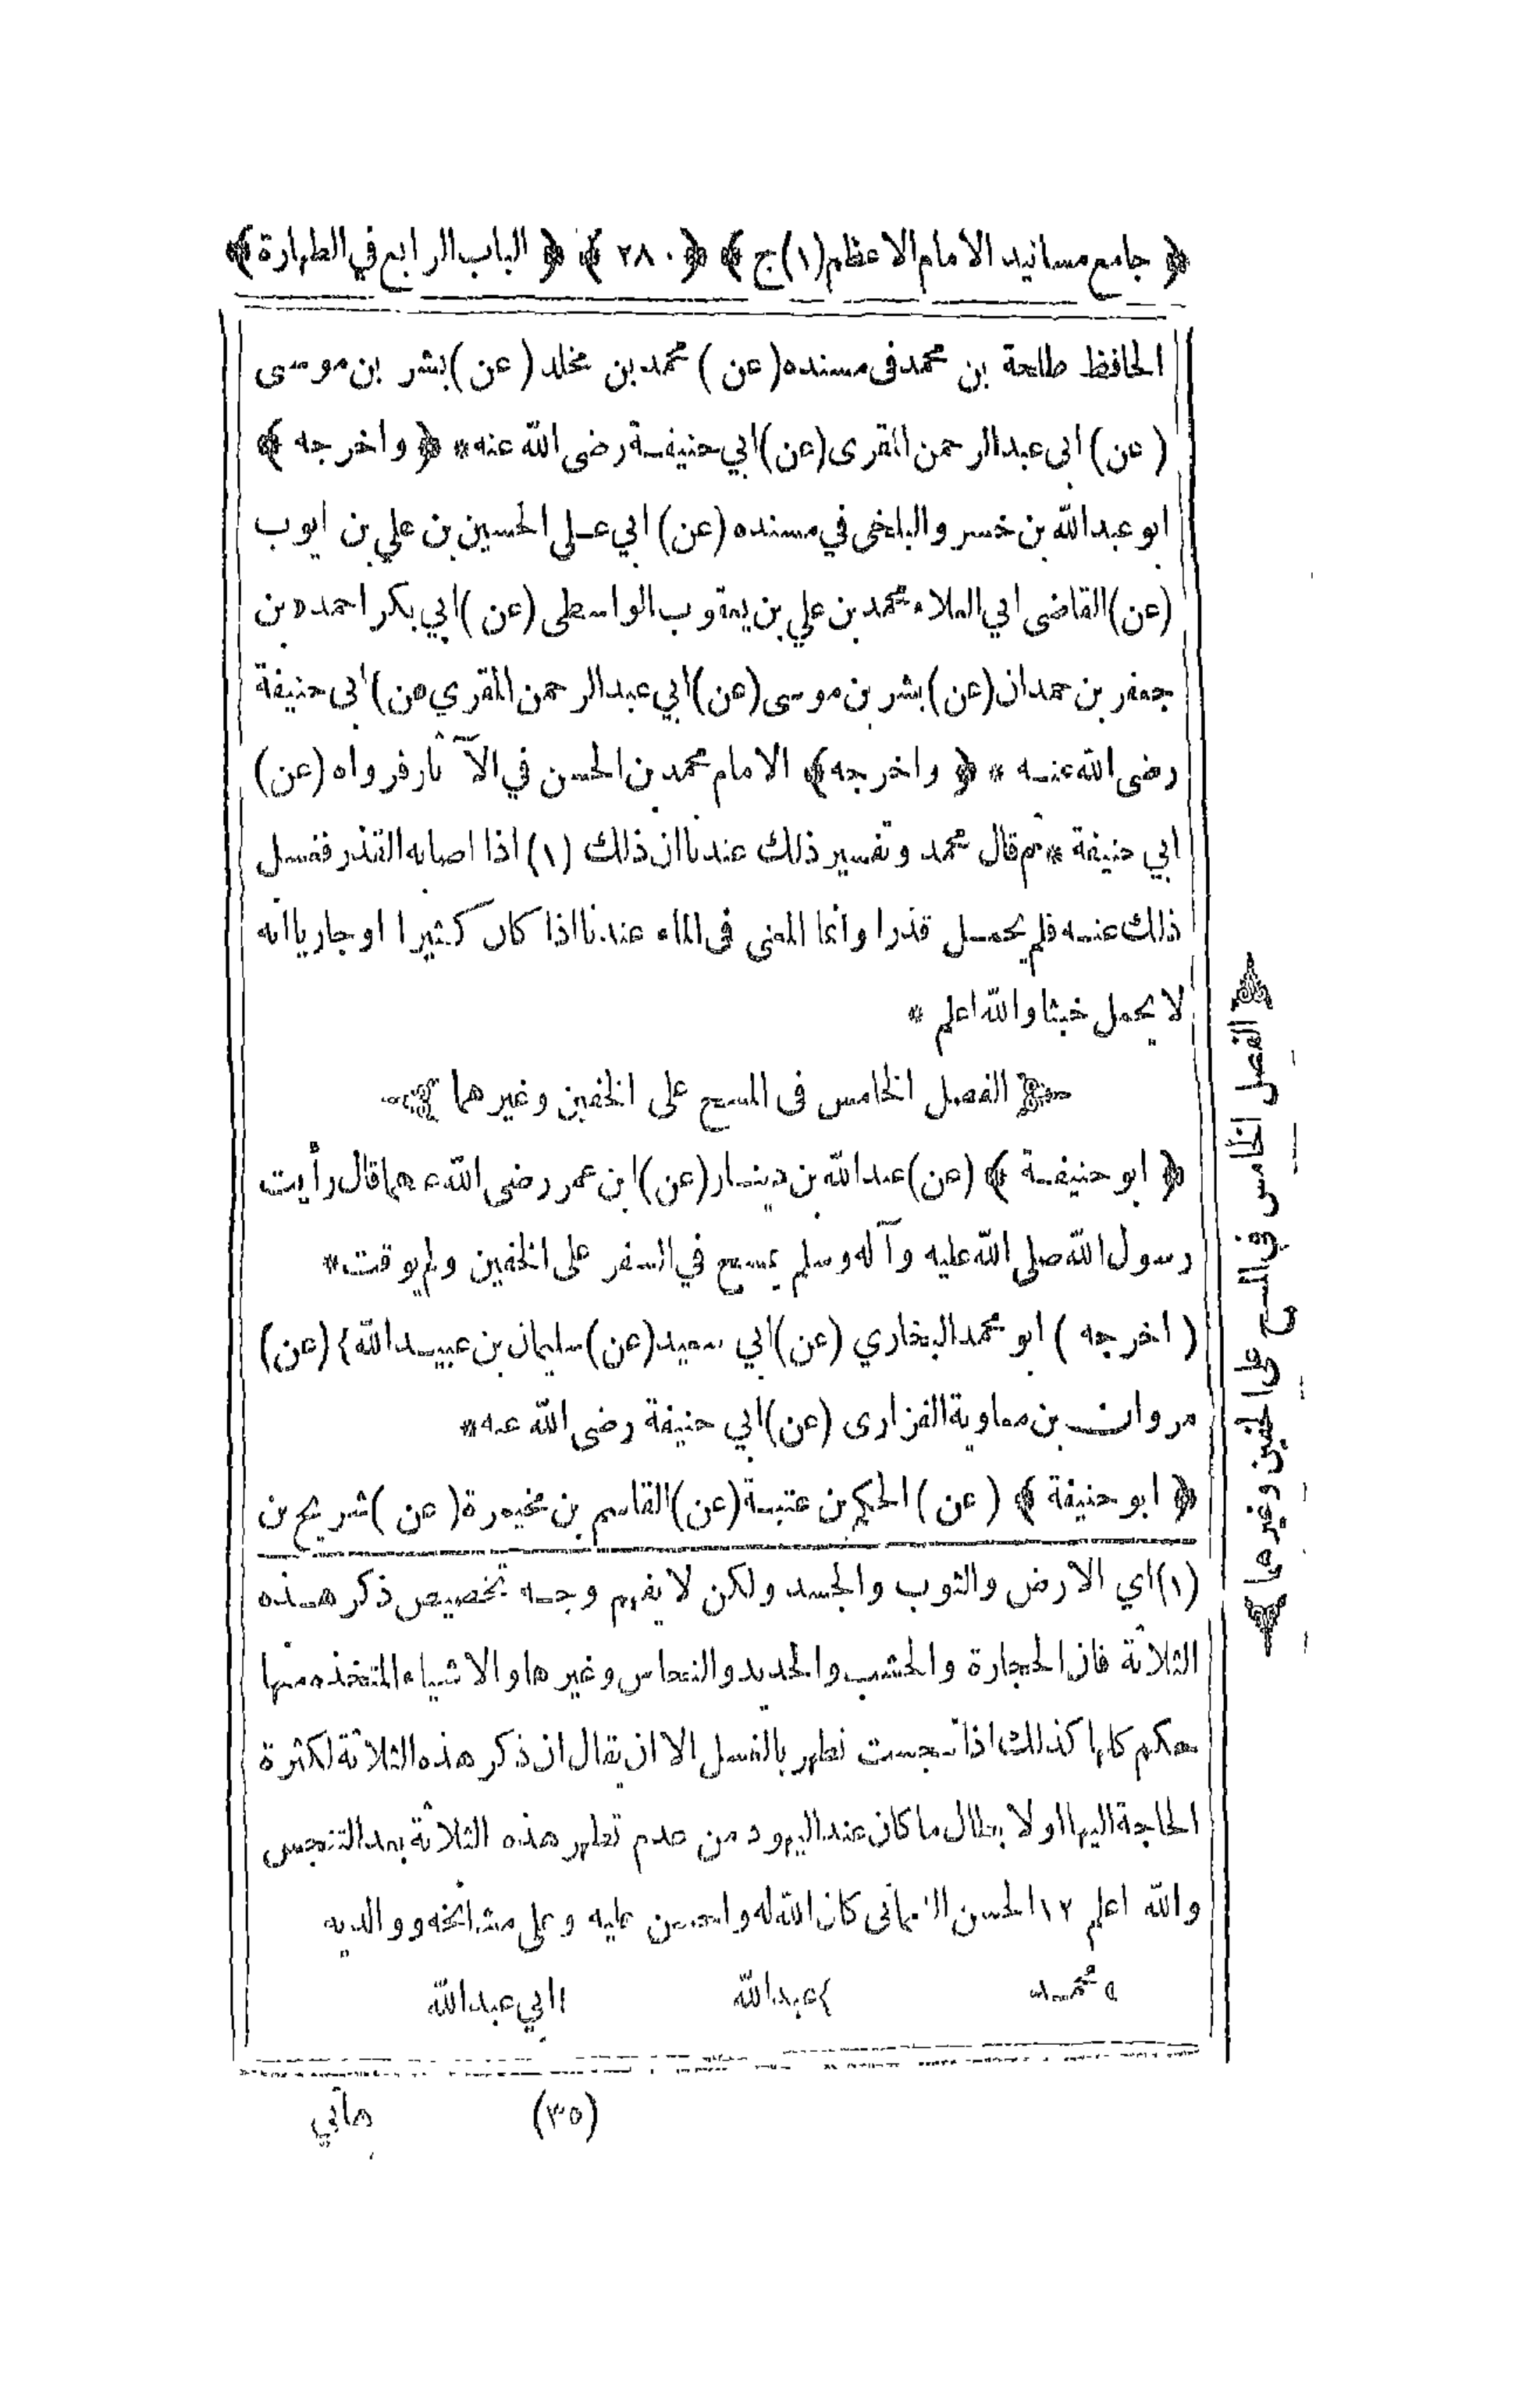 ﴿ جامع مسانيد الامام الاعظم (١) ج ﴾ ﴿ ٢٨٠ ﴾ ﴿ الباب الرابع في الطهارة ﴾
الحافظ طلحة بن محمد فى مسنده (عن) محمد بن مخلد (عن) بشر بن موسى
(عن) ابى عبد الرحمن المقرى (عن) ابي حنيفة رضى الله عنه * ﴿ واخرجه ﴾
ابو عبد الله بن خسرو البلخى في مسنده (عن) ابي على الحسين بن علي بن ايوب
(عن) القاضى ابي العلاء محمد بن علي بن يعقوب الواسطى (عن) ابي بكر احمد ه بن
جعفر بن حمدان (عن) بشر بن موسى (عن) ابي عبد الرحمن المقري (عن) ابى حنيفة
رضى الله عنه * ﴿ واخرجه ﴾ الامام محمد بن الحسن في الآثار فرواه (عن)
ابي حنيفة * ثم قال محمد وتفسير ذلك عندنا ان ذلك (١) اذا اصابه القذر فغسل
ذلك عنه فلم يحمل قذرا وانما المعنى فى الماء عندنا اذا كان كثيرا او جاريا انه
لا يحمل خبثا والله اعلم *
الفصل الخامس فى المسح على الخفين وغيرهما
﴿ ابو حنيفة ﴾ (عن) عبد الله بن دينار (عن) ابن عمر رضى الله عنهما قال رأيت
رسول الله صلى الله عليه وآله وسلم يمسح في السفر على الخفين ولم يوقت *
(اخرجه) ابو محمد البخاري (عن) ابي سعيد (عن) سليمان بن عبيد الله } (عن)
مروان بن معاوية الفزارى (عن) ابي حنيفة رضى الله عنه *
﴿ ابو حنيفة ﴾ (عن) الحكم بن عتبة (عن) القاسم بن مخيمرة (عن) شريح بن
(١) اي الارض والثوب والجسد ولكن لا يفهم وجه تخصيص ذكر هذه
الثلاثة فان الحجارة والخشب والحديد والنحاس وغيرها والاشياء المتخذه منها
حكم كلها كذلك اذا تنجست تطهر بالغسل الا ان يقال ان ذكر هذه الثلاثة لكثرة
الحاجة اليها او لا بطال ما كان عند اليهود من عدم تطهر هذه الثلاثة بعد التنجس
والله اعلم ١٢ الحسن النعمانى كان الله له واحسن عليه وعلى مشائخه ووالديه
ه محمد } عبد الله ا ابي عبد الله
(٣٥) هاني
﴿ الفصل الخامس في المسح على الخفين وغيرهما ﴾